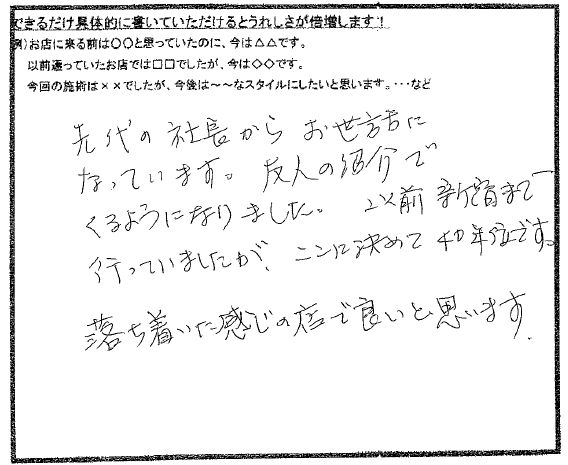 できるだけ具体的に書いていただけるとうれしさが倍増します！
例）お店に来る前は〇〇と思っていたのに、今は△△です。
以前通っていたお店では□□でしたが、今は◇◇です。
今回の施術は××でしたが、今後は～～なスタイルにしたいと思います。･･･など
先代の社長からお世話に
なっています。友人の紹介で
くるようになりました。以前新宿まで
行っていましたが、ここに決めて40年位です。
落ち着いた感じの店で良いと思います.